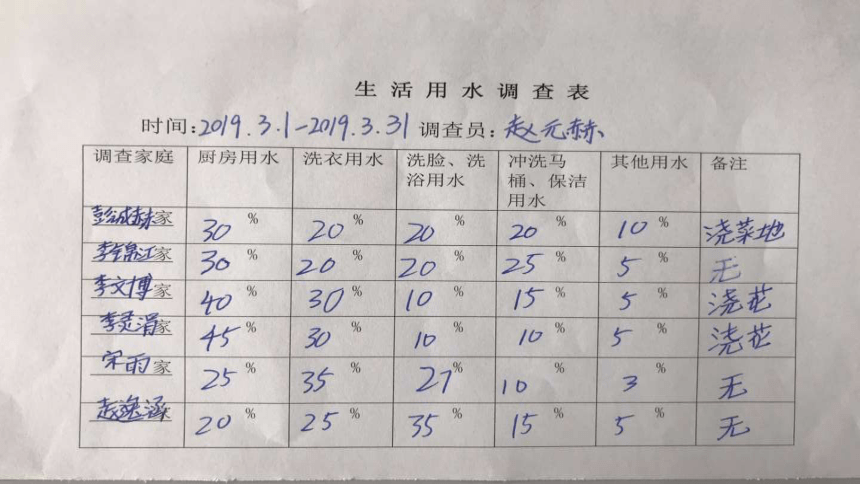 生活用水调查表
时间:2019.3.1-2019.3.31 调查员:赵元赫
调查家庭 厨房用水 洗衣用水 洗脸、洗浴用水 冲洗马桶、保洁用水 其他用水 备注
彭诚赫家 30% 20% 20% 20% 10% 浇菜地
李锦江家 30% 20% 20% 25% 5% 无
李文博家 40% 30% 10% 15% 5% 浇花
李灵涓家 45% 30% 10% 10% 5% 浇花
宋雨家 25% 35% 27% 10% 3% 无
赵逸涵家 20% 25% 35% 15% 5% 无